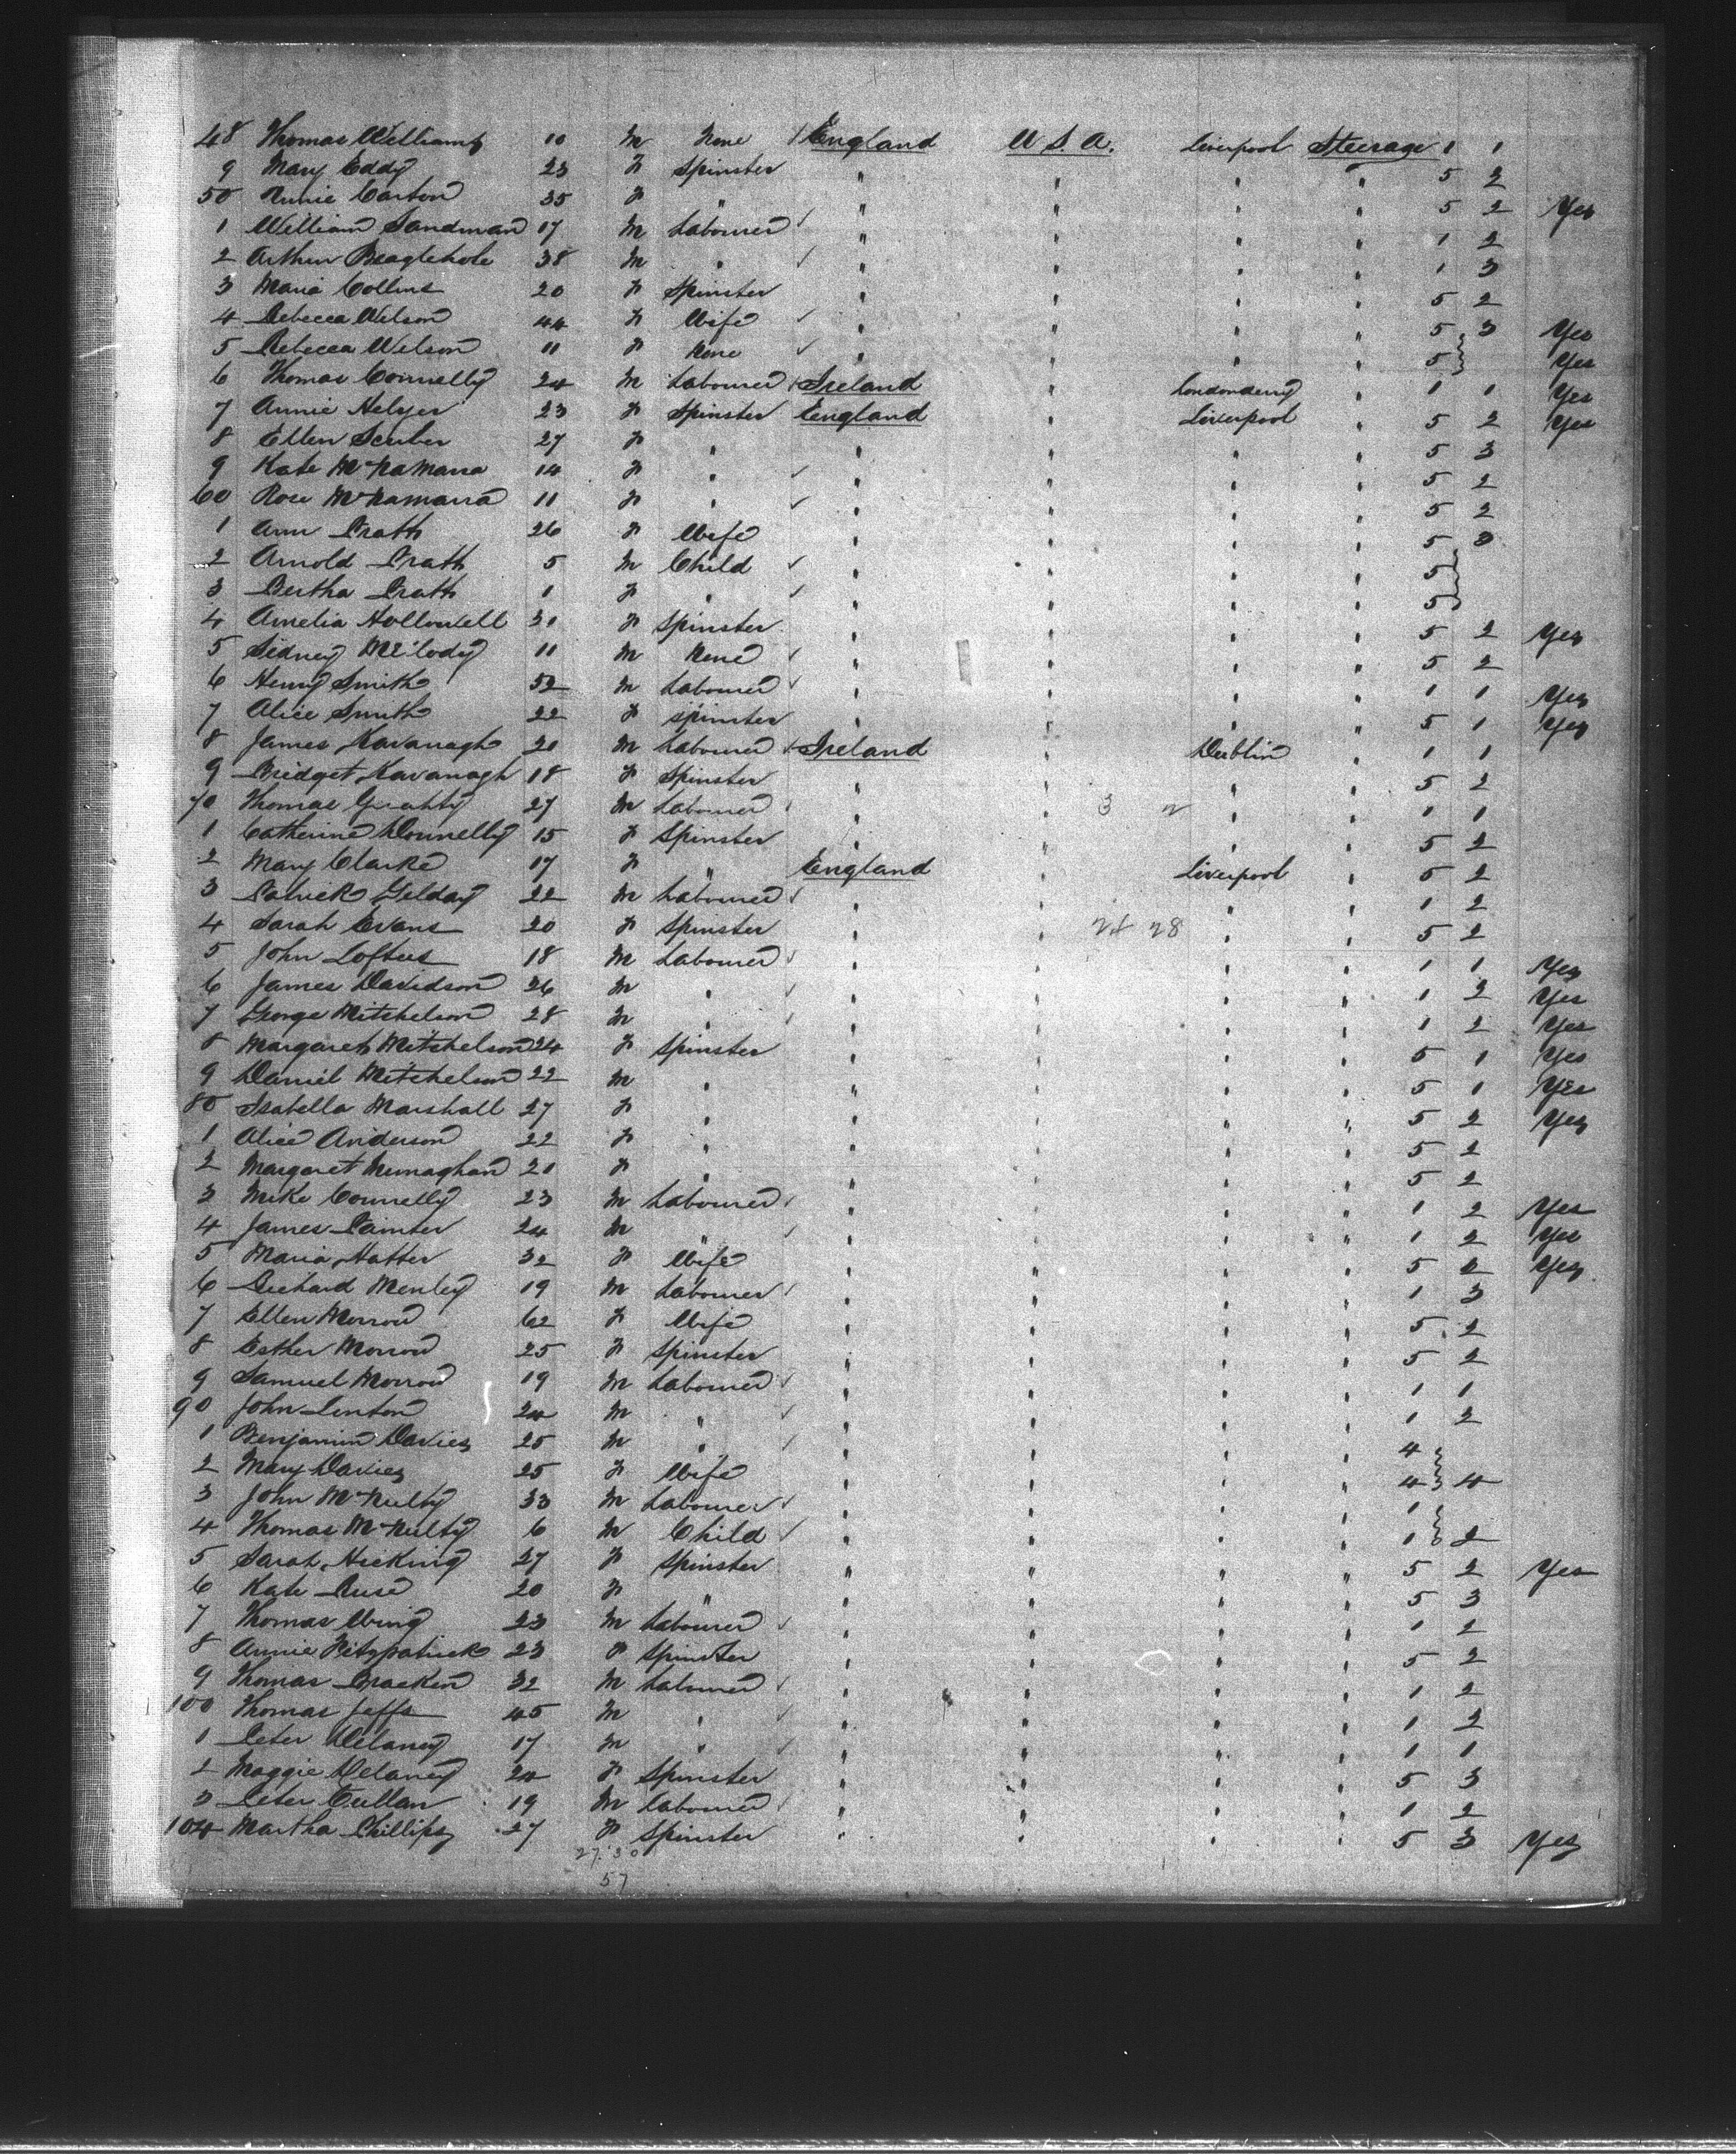 48 Thomas Williams 10 M None England U.S.A. Liverpool Steerage 1 1
9 Mary Eddy 23 F Spinster " " " " 5 2
50 Annie Carton 35 F " " " " " 5 2 Yes
1 William Sandman 17 M Labourer " " " " 1 2
2 Arthur Beaglehole 38 M " " " " " 1 3
3 Maria Collins 20 F Spinster " " " " 5 2
4 Rebecca Wilson 44 F Wife " " " " 5 3 Yes
5 Rebecca Wilson 11 F None " " " " 5 Yes
6 Thomas Connelly 24 M Labourer Ireland " Londonderry " 1 1 Yes
7 Annie Helyer 23 F Spinster England " Liverpool " 5 2 Yes
8 Ellen 27 F " " " " " 5 3
9 Kate McNamara 14 F " " " " " 5 2
60 Rose McNamara 11 F " " " " " 5 2
1 Ann Pratt 26 F Wife " " " " 5 3
2 Arnold Pratt 5 M Child " " " " 5
3 Bertha Pratt 1 F " " " " " 5
4 Amelia Hollowell 21 F Spinster " " " " 5 2 Yes
5 Sidney 11 M None " " " " 5 2
6 Henry Smith 52 M Labourer " " " " 1 1 Yes
7 Alice Smith 22 F Spinster " " " " 5 1 Yes
8 James Kavanagh 20 M Labourer Ireland " Dublin " 1 1
9 Bridget Kavanagh 18 F Spinster " " " " 5 2
70 Thomas 27 M Labourer " " 3 " " 1 1
1 Catherine Donnelly 15 F Spinster " " " " 5 2
2 Mary Clarke 17 F " England " Liverpool " 5 2
3 Patrick Gilday 22 M Labourer " " " " 1 2
4 Sarah Evans 20 F Spinster " " 28 " " 5 2
5 John Loftus 18 M Labourer " " " " 1 1 Yes
6 James Davidson 26 M " " " " " 1 2 Yes
7 George Mitchelson 28 M " " " " " 1 2 Yes
8 Margaret Mitchelson 24 F Spinster " " " " 5 1 Yes
9 Daniel Mitchelson 22 M " " " " " 5 1 Yes
80 Isabella Marshall 27 F " " " " " 5 2 Yes
1 Alice Anderson 22 F " " " " " 5 2
2 Margaret 20 F " " " " " 5 2
3 Mike Connelly 23 M Labourer " " " " 1 2 Yes
4 James Painter 24 M " " " " " 1 2 Yes
5 Maria Hatter 32 F Wife " " " " 5 2 Yes
6 Richard Menley 19 M Labourer " " " " 1 3
7 Ellen Morrow 62 F Wife " " " " 5 2
8 Esther Morrow 25 F Spinster " " " " 5 2
9 Samuel Morrow 19 M Labourer " " " " 1 1
90 John Linton 24 M " " " " " 1 2
1 Benjamin Davies 25 M " " " " " 4
2 Mary Davies 25 F Wife " " " " 4 4
3 John McNulty 33 M Labourer " " " " 1
4 Thomas McNulty 6 M Child " " " " 1 2
5 Sarah Hicking 27 F Spinster " " " " 5 2 Yes
6 Kate 20 F " " " " " 5 3
7 Thomas Wing 23 M Labourer " " " " 1 2
8 Annie Fitzpatrick 23 F Spinster " " " " 5 2
9 Thomas Bracken 32 M Labourer " " " " 1 2
100 Thomas Jeffs 45 M " " " " " 1 2
1 Peter Delaney 17 M " " " " " 1 1
2 Maggie Delaney 24 F Spinster " " " " 5 3
3 Peter Cullan 19 M Labourer " " " " 1 2
104 Martha Phillips 27 F Spinster " " " " 5 3 Yes
27. 30
57